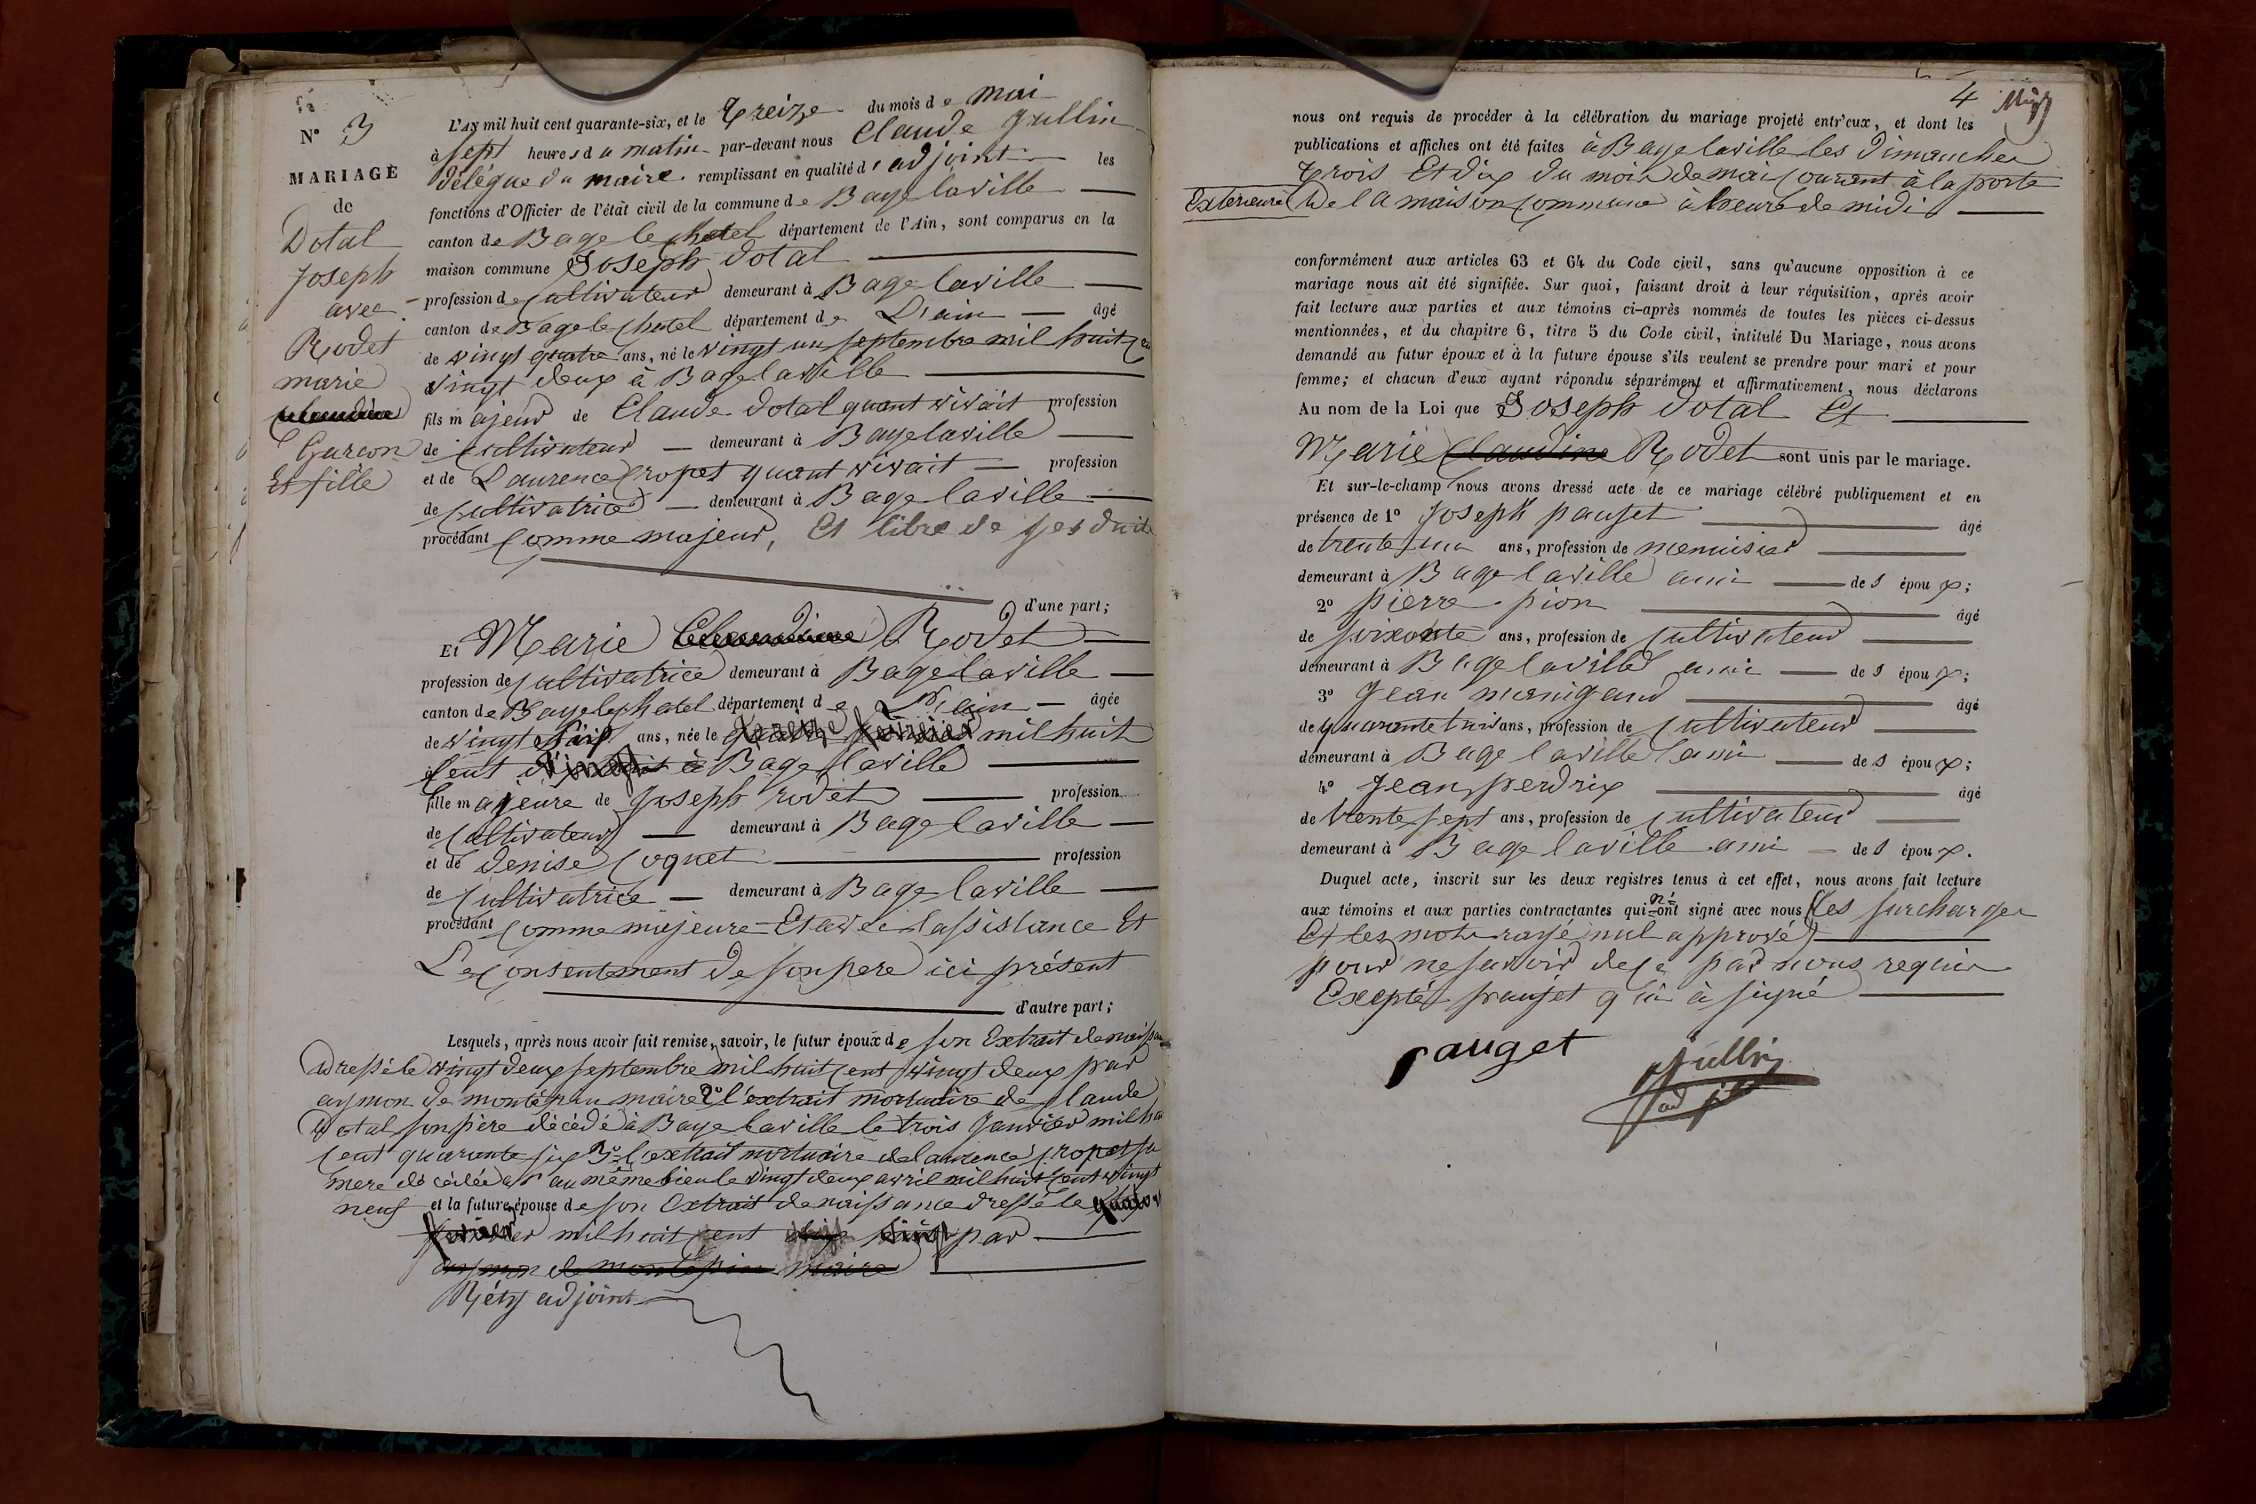 N° 3
MARIAGE
de
Dotal
Joseph
avec
Rodet
marie
Garcon
Et fille
L'AN mil huit cent quarante-six, et le Treize du mois de mai
à sept heures du matin par-devant nous Claude Jullin
délégué du maire. remplissant en qualité d'adjoint les
fonctions d'Officier de l'état civil de la commune de Bage laville
canton de Bage le chatel département de l'Ain, sont comparus en la
maison commune Joseph dotal
profession de Cultivateur demeurant à Bage laville
canton de Bage le Chatel département de L'ain âgé
de vingt quatre ans, né le vingt un septembre mil huit cent
vingt deux à Bage laville
fils majeur de Claude dotal quant vivait profession
de Cultivateur demeurant à Bage laville
et de Laurence Cropet quant vivait profession
de Cultivatrice demeurant à Bage laville
procédant Comme majeur, Et libre de ses droits
d'une part;
Et Marie Claudine Rodet
profession de Cultivatrice demeurant à Bage laville
canton de Bage le chatel département de L'ain âgée
de vingt ans, née le treize février mil huit
Cent vingt à Bage laville
fille majeure de Joseph rodet profession
de Cultivateur demeurant à Bage laville
et de denise Coquet profession
de Cultivatrice demeurant à Bage laville
procédant Comme majeure Et avec lassistance Et
Le Consentement de son pere ici présent
d'autre part;
Lesquels, après nous avoir fait remise, savoir, le futur époux de son Extrait de naissance
dressé le vingt deux septembre mil huit cent vingt deux par
aymon de montépin maire 2° l'extrait mortuaire de Claude
Dotal son père décédé à Bage laville le trois Janvier mil huit
Cent quarante six 3° l'extrait mortuaire de laurence Cropet sa
mere décédée au même lieu le vingt deux avril mil huit cent vingt
neuf et la future épouse de son Extrait de naissance dressé le quator
février mil huit cent vingt par
aymon de montépin maire
Réty adjoint
4
nous ont requis de procéder à la célébration du mariage projeté entr'eux, et dont les
publications et affiches ont été faites à Bage laville les dimanches
trois Et dix du mois de mai Courant à la porte
Exterieure de la maison Commune à heure de midi
conformément aux articles 63 et 64 du Code civil, sans qu'aucune opposition à ce
mariage nous ait été signifiée. Sur quoi, faisant droit à leur réquisition, après avoir
fait lecture aux parties et aux témoins ci-après nommés de toutes les pièces ci-dessus
mentionnées, et du chapitre 6, titre 5 du Code civil, intitulé Du Mariage, nous avons
demandé au futur époux et à la future épouse s'ils veulent se prendre pour mari et pour
femme; et chacun d'eux ayant répondu séparément et affirmativement, nous déclarons
Au nom de la Loi que Joseph dotal Et
Marie Claudine Rodet sont unis par le mariage.
Et sur-le-champ nous avons dressé acte de ce mariage célébré publiquement et en
présence de 1° Joseph pauget âgé
de trente un ans, profession de menuisier
demeurant à Bage laville ami des époux;
2° pierre pion âgé
de soixante ans, profession de Cultivateur
demeurant à Bage laville ami des époux;
3° Jean manigand âgé
de quarante trois ans, profession de Cultivateur
demeurant à Bage laville ami des époux;
4° Jean perdrix âgé
de trente sept ans, profession de Cultivateur
demeurant à Bage laville ami des époux.
Duquel acte, inscrit sur les deux registres tenus à cet effet, nous avons fait lecture
aux témoins et aux parties contractantes qui n'ont signé avec nous (les surcharges
Et les mots rayé nul apprové)
pour ne savoir de ce par nous requis
Excepté pauget qui à signé
pauget
Jullin
adjt